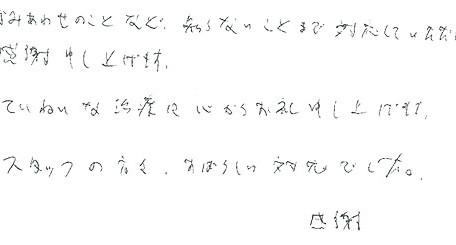 みあわせのことなど、知らないことまで対応していただ
感謝申し上げます。
ていねいな治療に心からお礼申し上げます。
スタッフの方々、すばらしい対応でした。
感謝